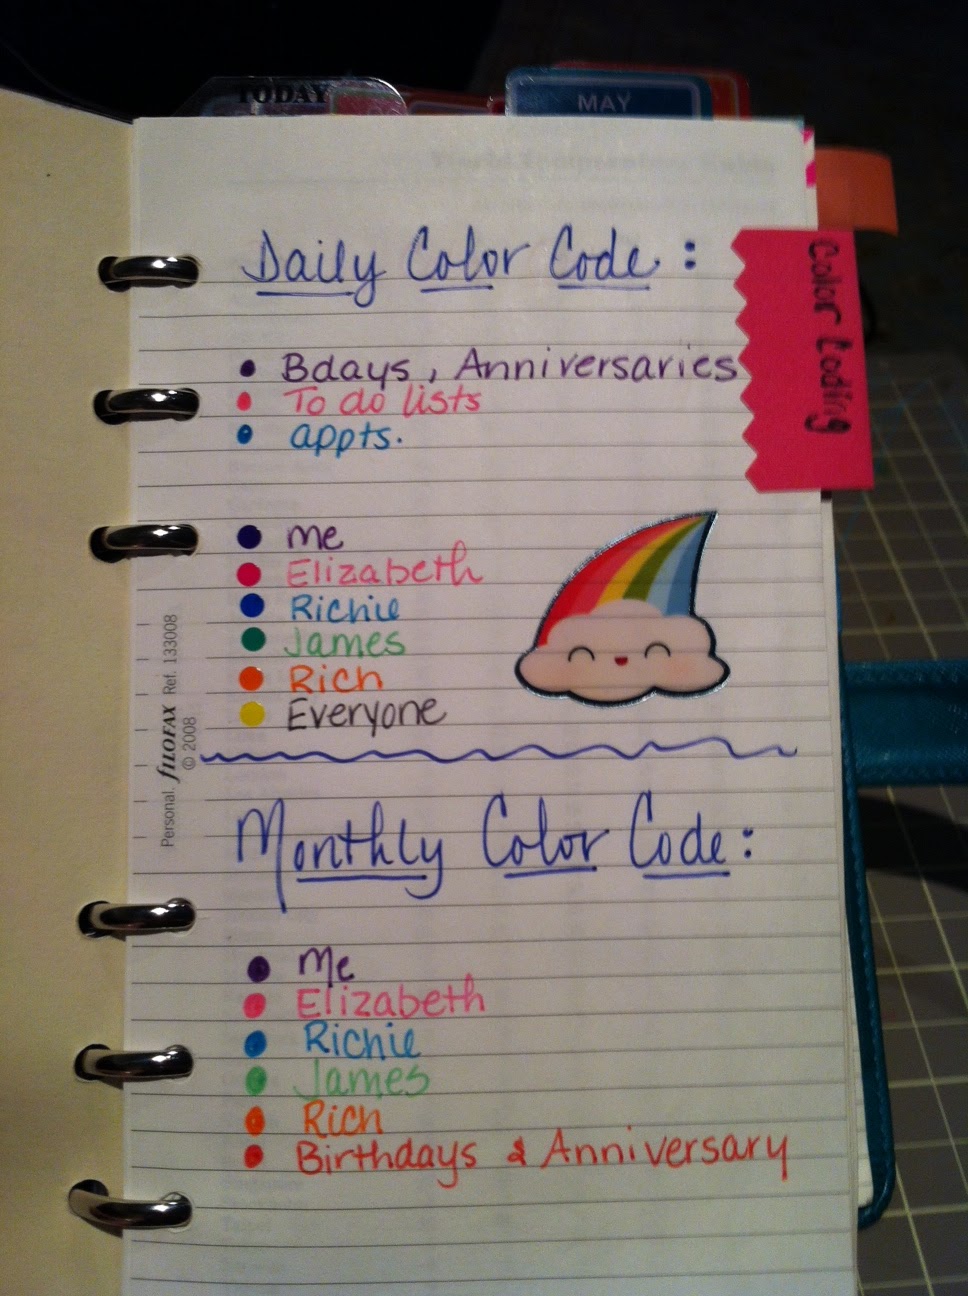 TODAY
MAY
Color Coding
Daily Color Code:
Bdays, Anniversaries
To do lists
appts.
Me
Elizabeth
Richie
James
Rich
Everyone
Personal. fILOFAX Ref. 133008
© 2008
Monthly Color Code:
Me
Elizabeth
Richie
James
Rich
Birthdays & Anniversary